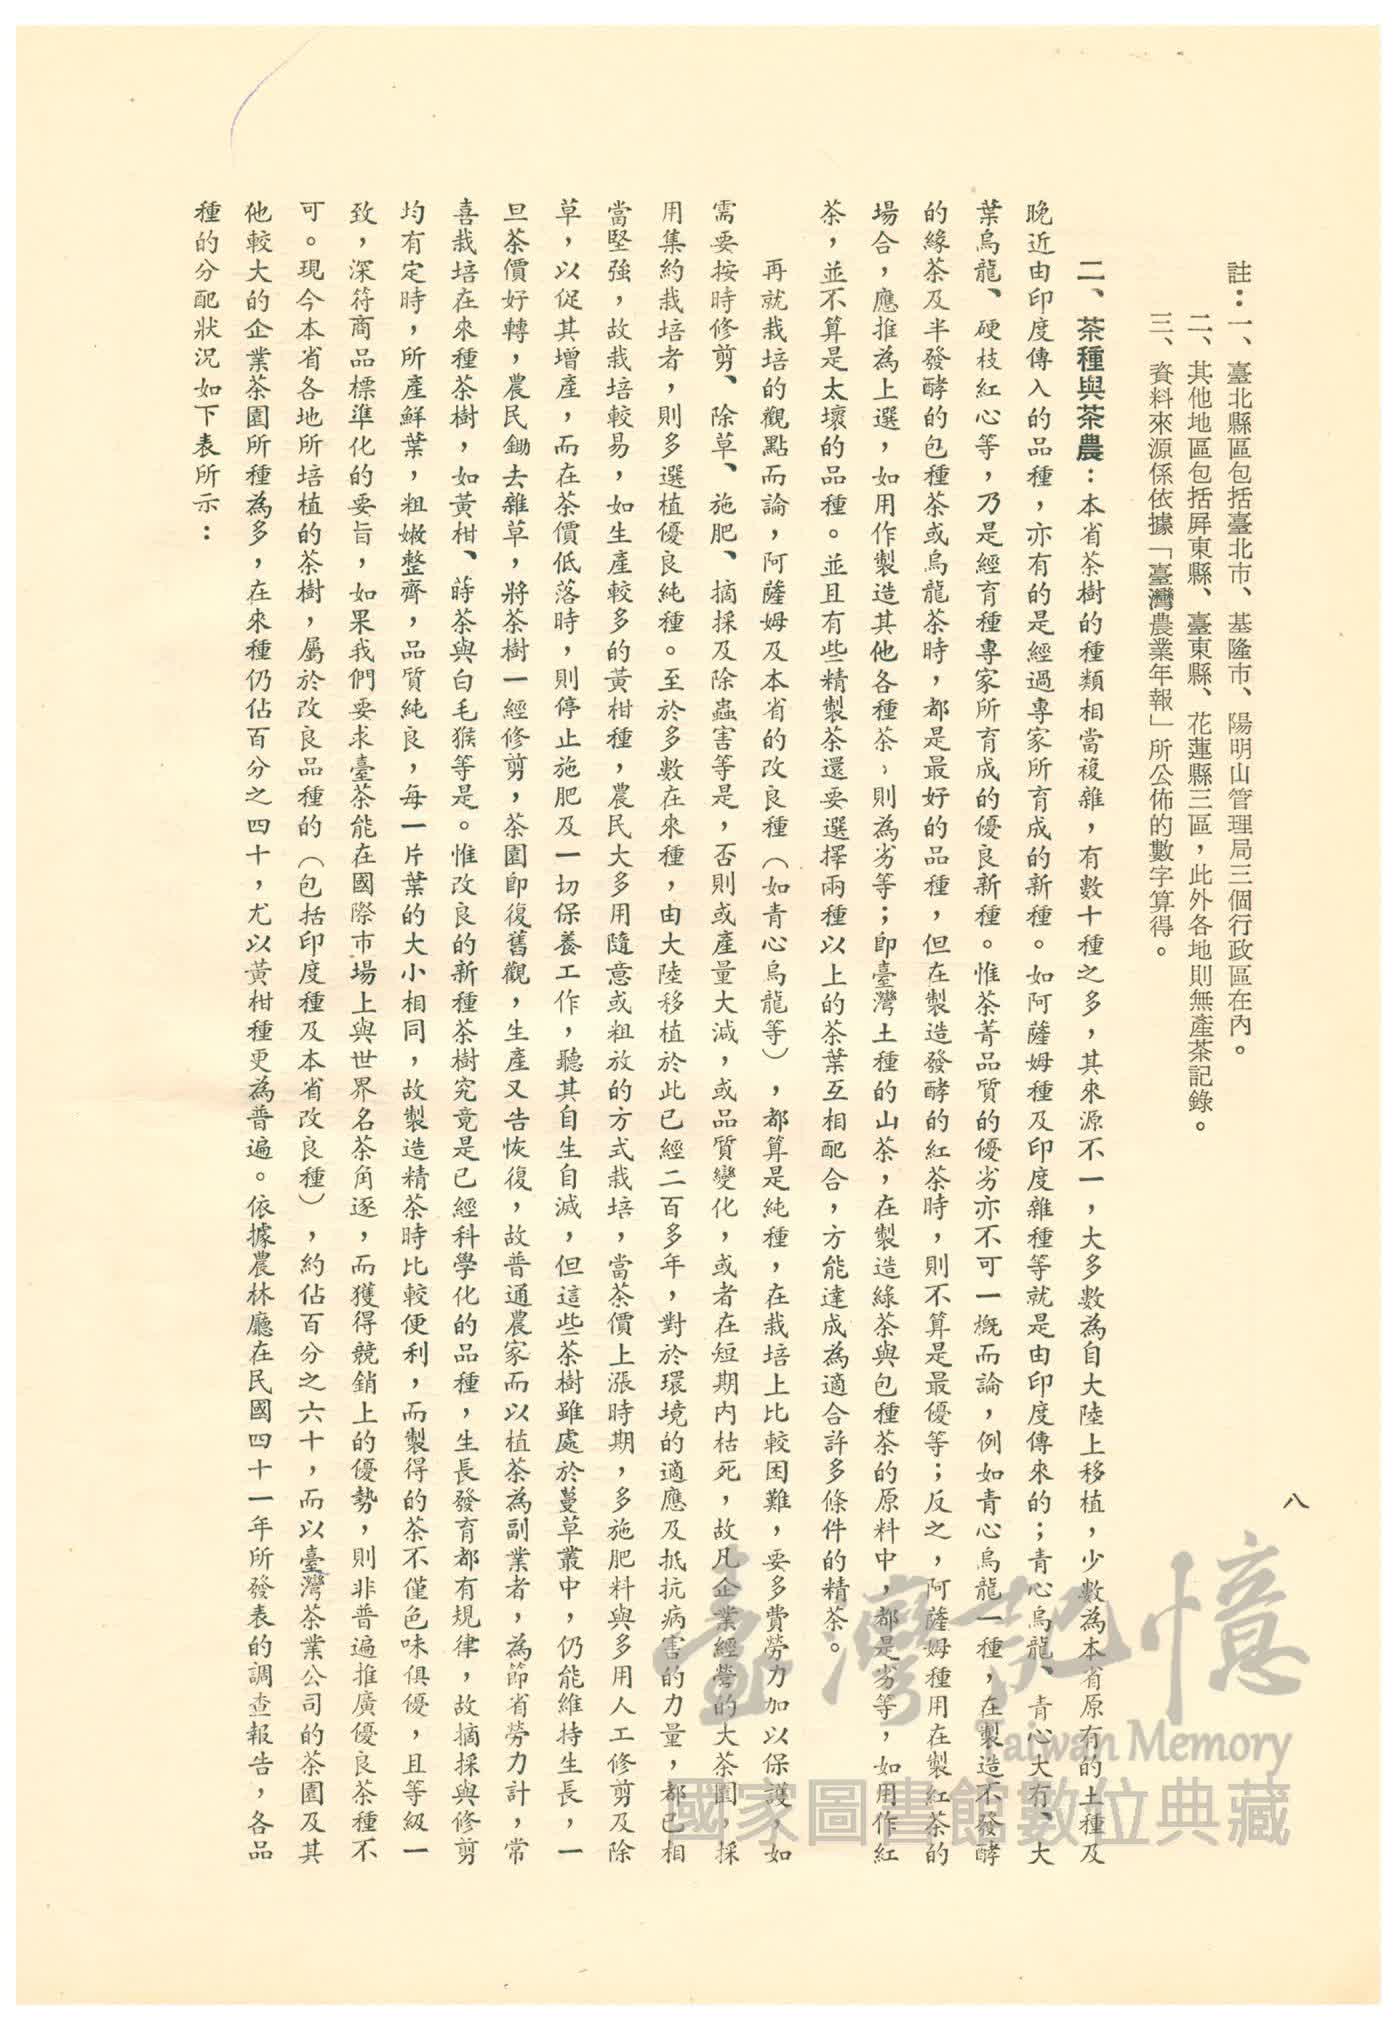 八
註：一、臺北縣區包括臺北市、基隆市、陽明山管理局三個行政區在內。
二、其他地區包括屏東縣、臺東縣、花蓮縣三區，此外各地則無產茶記錄。
三、資料來源係依據「臺灣農業年報」所公佈的數字算得。
二、茶種與茶農：本省茶樹的種類相當複雜，有數十種之多，其來源不一，大多數為自大陸上移植，少數為本省原有的土種及
晚近由印度傳入的品種，亦有的是經過專家所育成的新種。如阿薩姆種及印度雜種等就是由印度傳來的；青心烏龍、青心大有、大
葉烏龍、硬枝紅心等，乃是經育種專家所育成的優良新種。惟茶菁品質的優劣亦不可一概而論，例如青心烏龍一種，在製造不發酵
的綠茶及半發酵的包種茶或烏龍茶時，都是最好的品種，但在製造發酵的紅茶時，則不算是最優等；反之，阿薩姆種用在製紅茶的
場合，應推為上選，如用作製造其他各種茶，則為劣等；即臺灣土種的山茶，在製造綠茶與包種茶的原料中，都是劣等，如用作紅
茶，並不算是太壞的品種。並且有些精製茶還要選擇兩種以上的茶葉互相配合，方能達成為適合許多條件的精茶。
再就栽培的觀點而論，阿薩姆及本省的改良種（如青心烏龍等），都算是純種，在栽培上比較困難，要多費勞力加以保護，如
需要按時修剪、除草、施肥、摘採及除蟲害等是，否則或產量大減，或品質變化，或者在短期內枯死，故凡企業經營的大茶園，採
用集約栽培者，則多選植優良純種。至於多數在來種，由大陸移植於此已經二百多年，對於環境的適應及抵抗病害的力量，都已相
當堅強，故栽培較易，如生產較多的黃柑種，農民大多用隨意或粗放的方式栽培，當茶價上漲時期，多施肥料與多用人工修剪及除
草，以促其增產，而在茶價低落時，則停止施肥及一切保養工作，聽其自生自滅，但這些茶樹雖處於蔓草叢中，仍能維持生長，一
旦茶價好轉，農民鋤去雜草，將茶樹一經修剪，茶園即復舊觀，生產又告恢復，故普通農家而以植茶為副業者，為節省勞力計，常
喜栽培在來種茶樹，如黃柑、蒔茶與白毛猴等是。惟改良的新種茶樹究竟是已經科學化的品種，生長發育都有規律，故摘採與修剪
均有定時，所產鮮葉，粗嫩整齊，品質純良，每一片葉的大小相同，故製造精茶時比較便利，而製得的茶不僅色味俱優，且等級一
致，深符商品標準化的要旨，如果我們要求臺茶能在國際市場上與世界名茶角逐，而獲得競銷上的優勢，則非普遍推廣優良茶種不
可。現今本省各地所培植的茶樹，屬於改良品種的（包括印度種及本省改良種），約佔百分之六十，而以臺灣茶業公司的茶園及其
他較大的企業茶園所種為多，在來種仍佔百分之四十，尤以黃柑種更為普遍。依據農林廳在民國四十一年所發表的調查報告，各品
種的分配狀況如下表所示：
臺灣記憶
Taiwan Memory
國家圖書館數位典藏